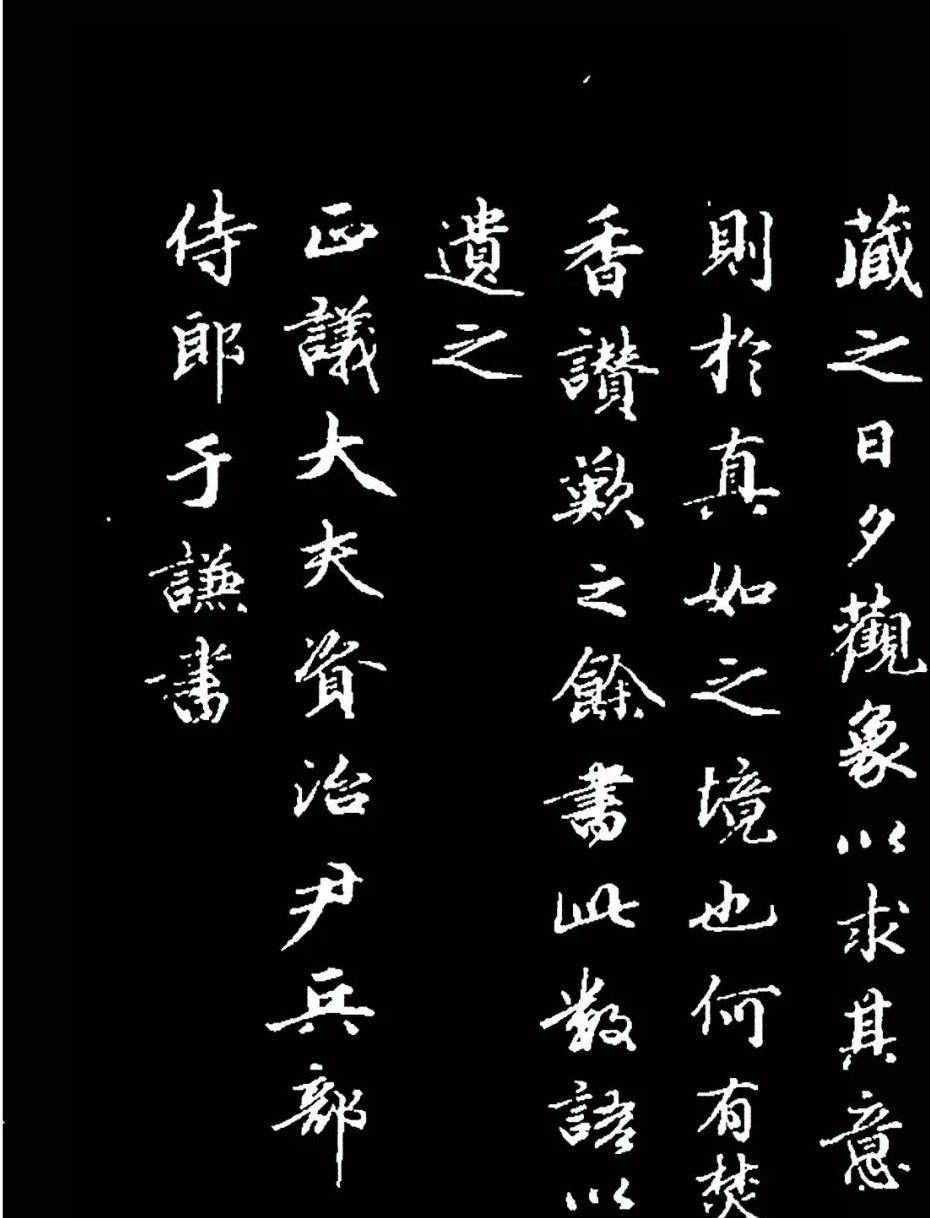 藏之日夕觀象以求其意
則於真如之境也何有焚
香讚歎之餘書此數語以
遺之
正議大夫資治尹兵部
侍郎于謙書